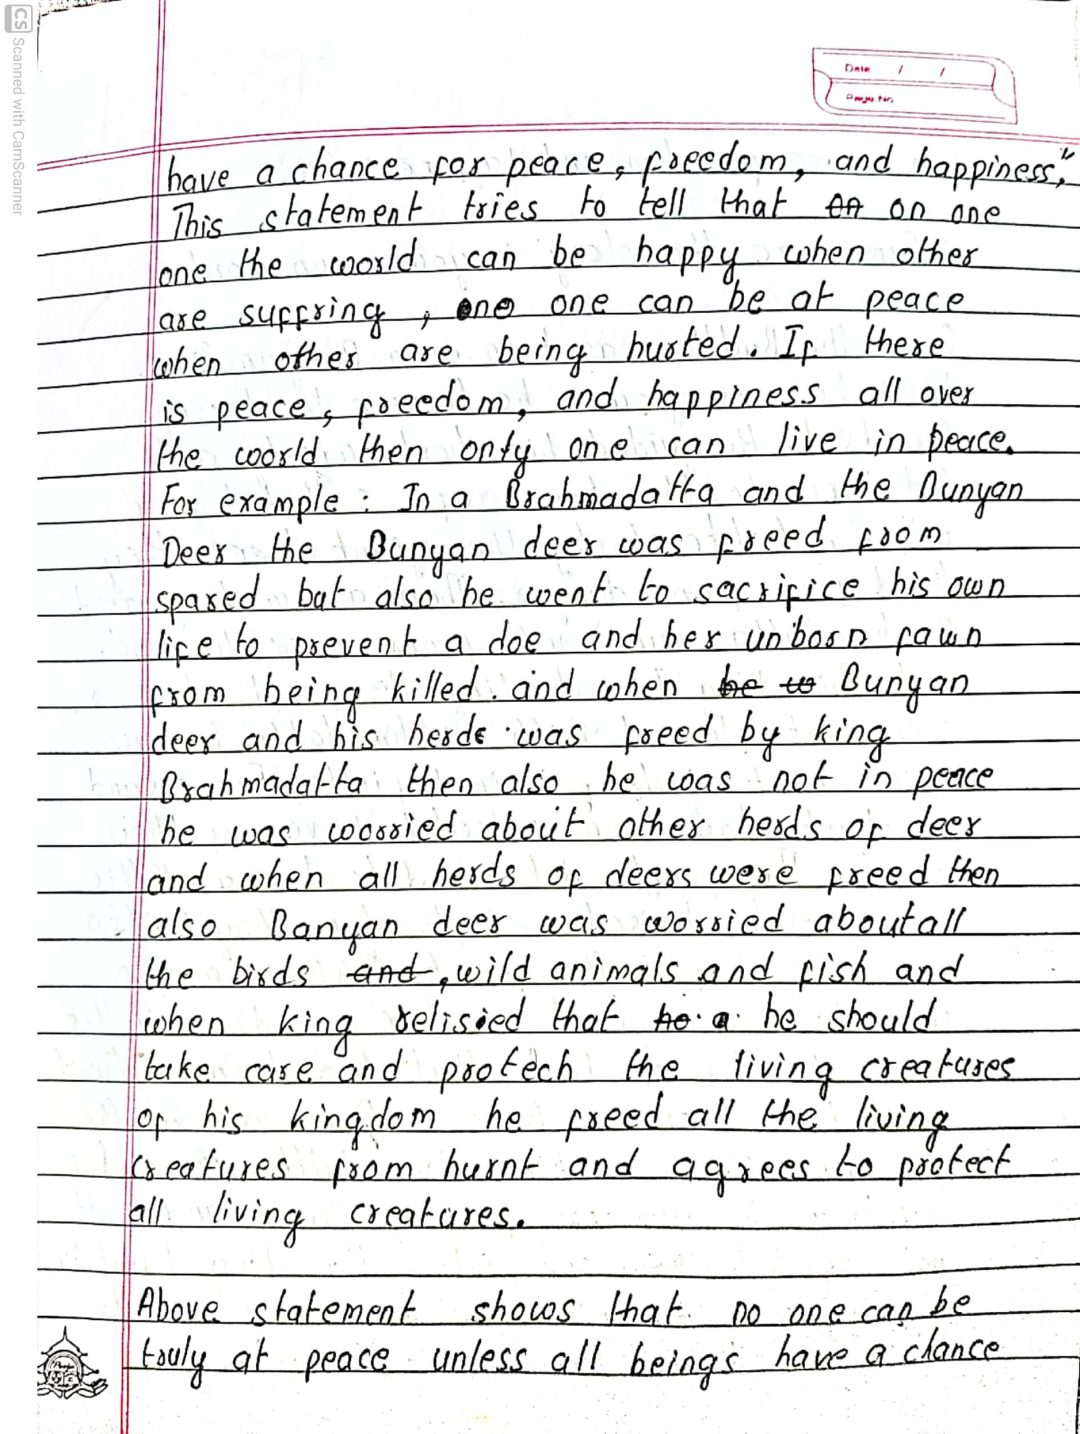 CS Scanned with CamScanner
Date / /
Page No.
have a chance for peace, freedom, and happiness,"
This statement tries to tell that on on one
one the world can be happy when other
are suffring, one one can be at peace
when other are being hurted. If there
is peace, freedom, and happiness all over
the world then only one can live in peace.
For example: In a Brahmadatta and the Bunyan
Deer the Bunyan deer was freed from
spared but also he went to sacrifice his own
life to prevent a doe and her unborn fawn
from being killed. and when he to Bunyan
deer and his herds was freed by king
Brahmadatta then also he was not in peace
he was worried about other herds of deer
and when all herds of deers were freed then
also Banyan deer was worried about all
the birds and, wild animals and fish and
when king relisied that he a he should
take care and protech the living creatures
of his kingdom he freed all the living
creatures from hurnt and agrees to protect
all living creatures.
Above statement shows that no one can be
truly at peace unless all beings have a chance